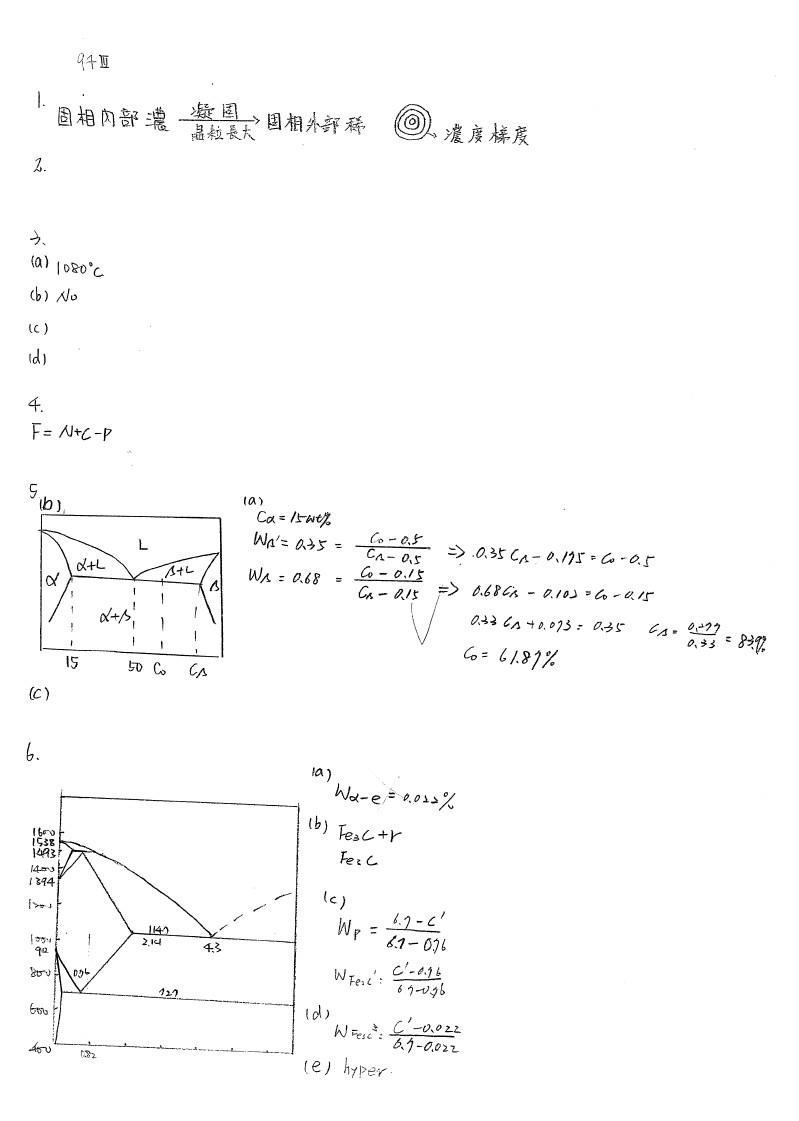 94 III
1.
固相內部濃 凝固 晶粒長大 → 固相外部稀 濃度梯度
2.
3.
(a) 1080°C
(b) No
(c)
(d)
4.
F = N+C-P
5.
(b)
L
α+L
β+L
α
β
α+β
15 50 C₀ Cβ
(a)
Cα = 15wt%
Wβ' = 0.35 = (C₀-0.5)/(Cβ-0.5) => 0.35Cβ - 0.175 = C₀ - 0.5
Wβ = 0.68 = (C₀-0.15)/(Cβ-0.15) => 0.68Cβ - 0.102 = C₀ - 0.15
0.33Cβ + 0.073 = 0.35 Cβ = 0.277/0.33 = 83.9%
C₀ = 61.87%
(c)
6.
1600
1538
1493
1400
1394
1200
1000
912
800
600
400
1147
2.14
4.3
0.76
727
(a)
Wα-e = 0.022%
(b) Fe₃C+γ
Fe₃C
(c)
Wp = (6.7-C')/(6.7-0.76)
WFe₃C' = (C'-0.76)/(6.7-0.76)
(d)
WFe₃C = (C'-0.022)/(6.7-0.022)
(e) hyper